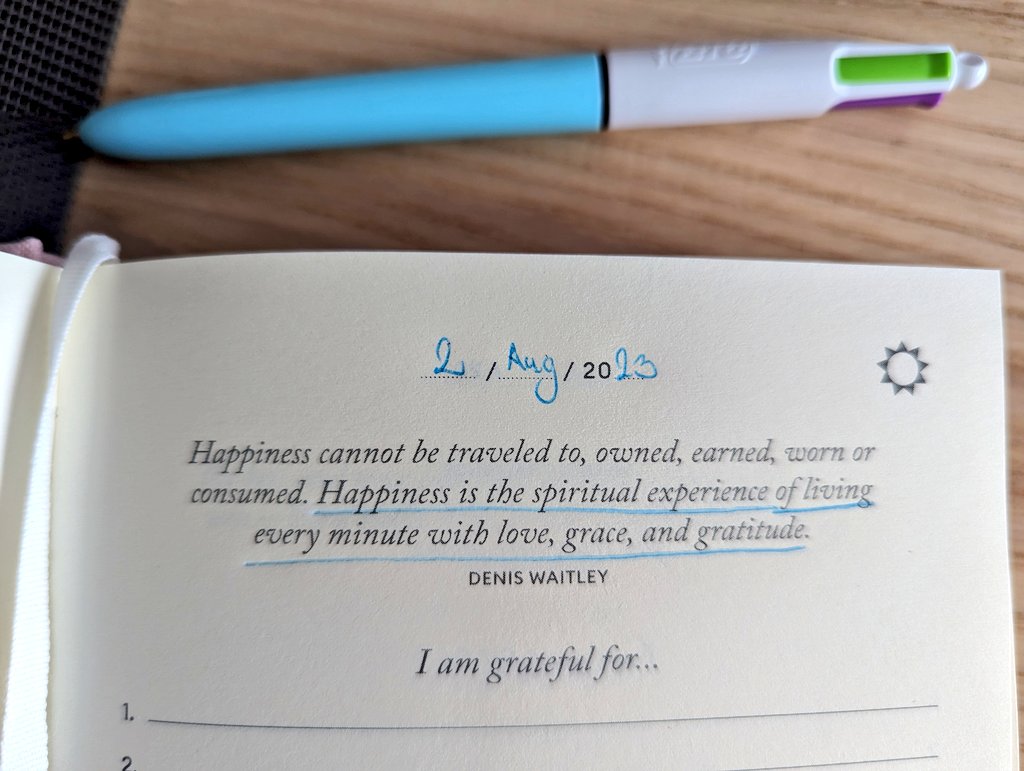 2 / Aug / 2023
Happiness cannot be traveled to, owned, earned, worn or
consumed. Happiness is the spiritual experience of living
every minute with love, grace, and gratitude.
DENIS WAITLEY
I am grateful for...
1.
2.